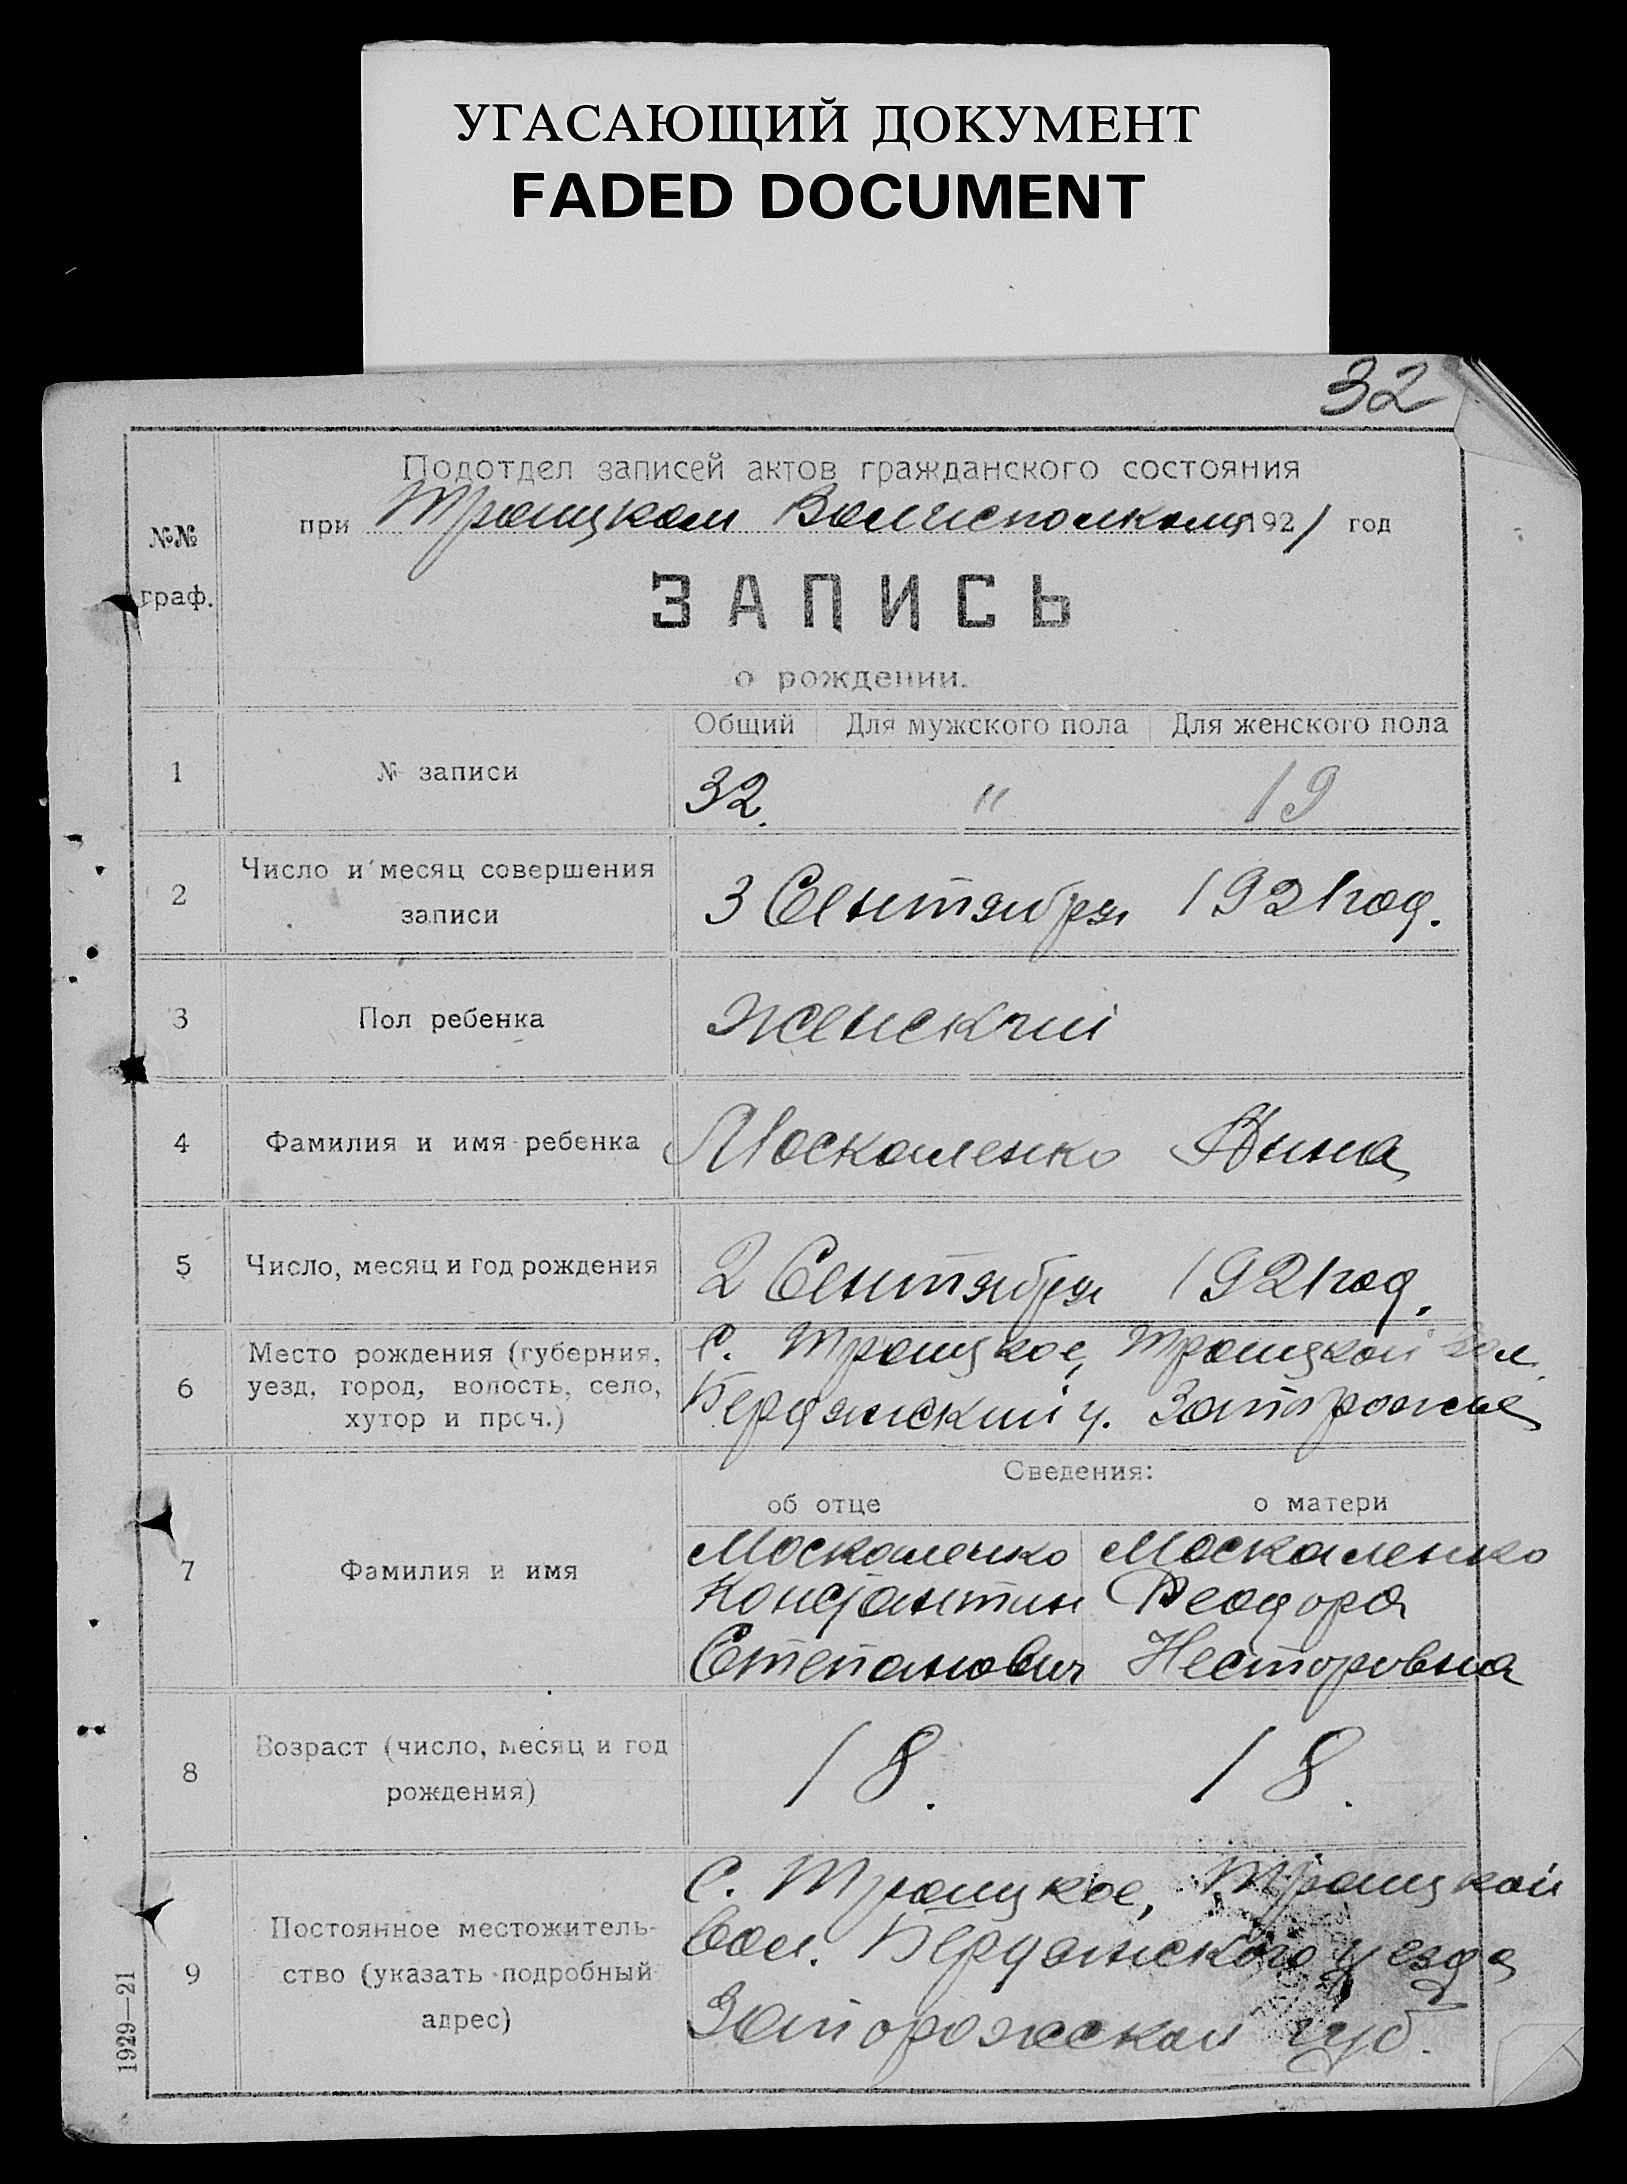 УГАСАЮЩИЙ ДОКУМЕНТ
FADED DOCUMENT
32
Подотдел записей актов гражданского состояния
№№ граф.
при Троицком Волисполкому 1921 год
ЗАПИСЬ
о рождении.
Общий Для мужского пола Для женского пола
1 № записи 32. " 19
2 Число и месяц совершения
записи
3 Сентября 1921 год.
3 Пол ребенка Женский
4 Фамилия и имя ребенка Москаленко Анна
5 Число, месяц и год рождения 2 Сентября 1921 год.
6 Место рождения (губерния,
уезд, город, волость, село,
хутор и проч.)
С. Троицкое, Троицкой вол.
Бердянский у. Запорожье
Сведения:
об отце о матери
7 Фамилия и имя
Москаленко Москаленко
Константин Феодора
Степанович Несторовна
8 Возраст (число, месяц и год
рождения)
18. 18.
9 Постоянное местожитель-
ство (указать подробный
адрес)
С. Троицкое, Троицкой
Вол. Бердянского уезда
Запорожской губ.
1929—21